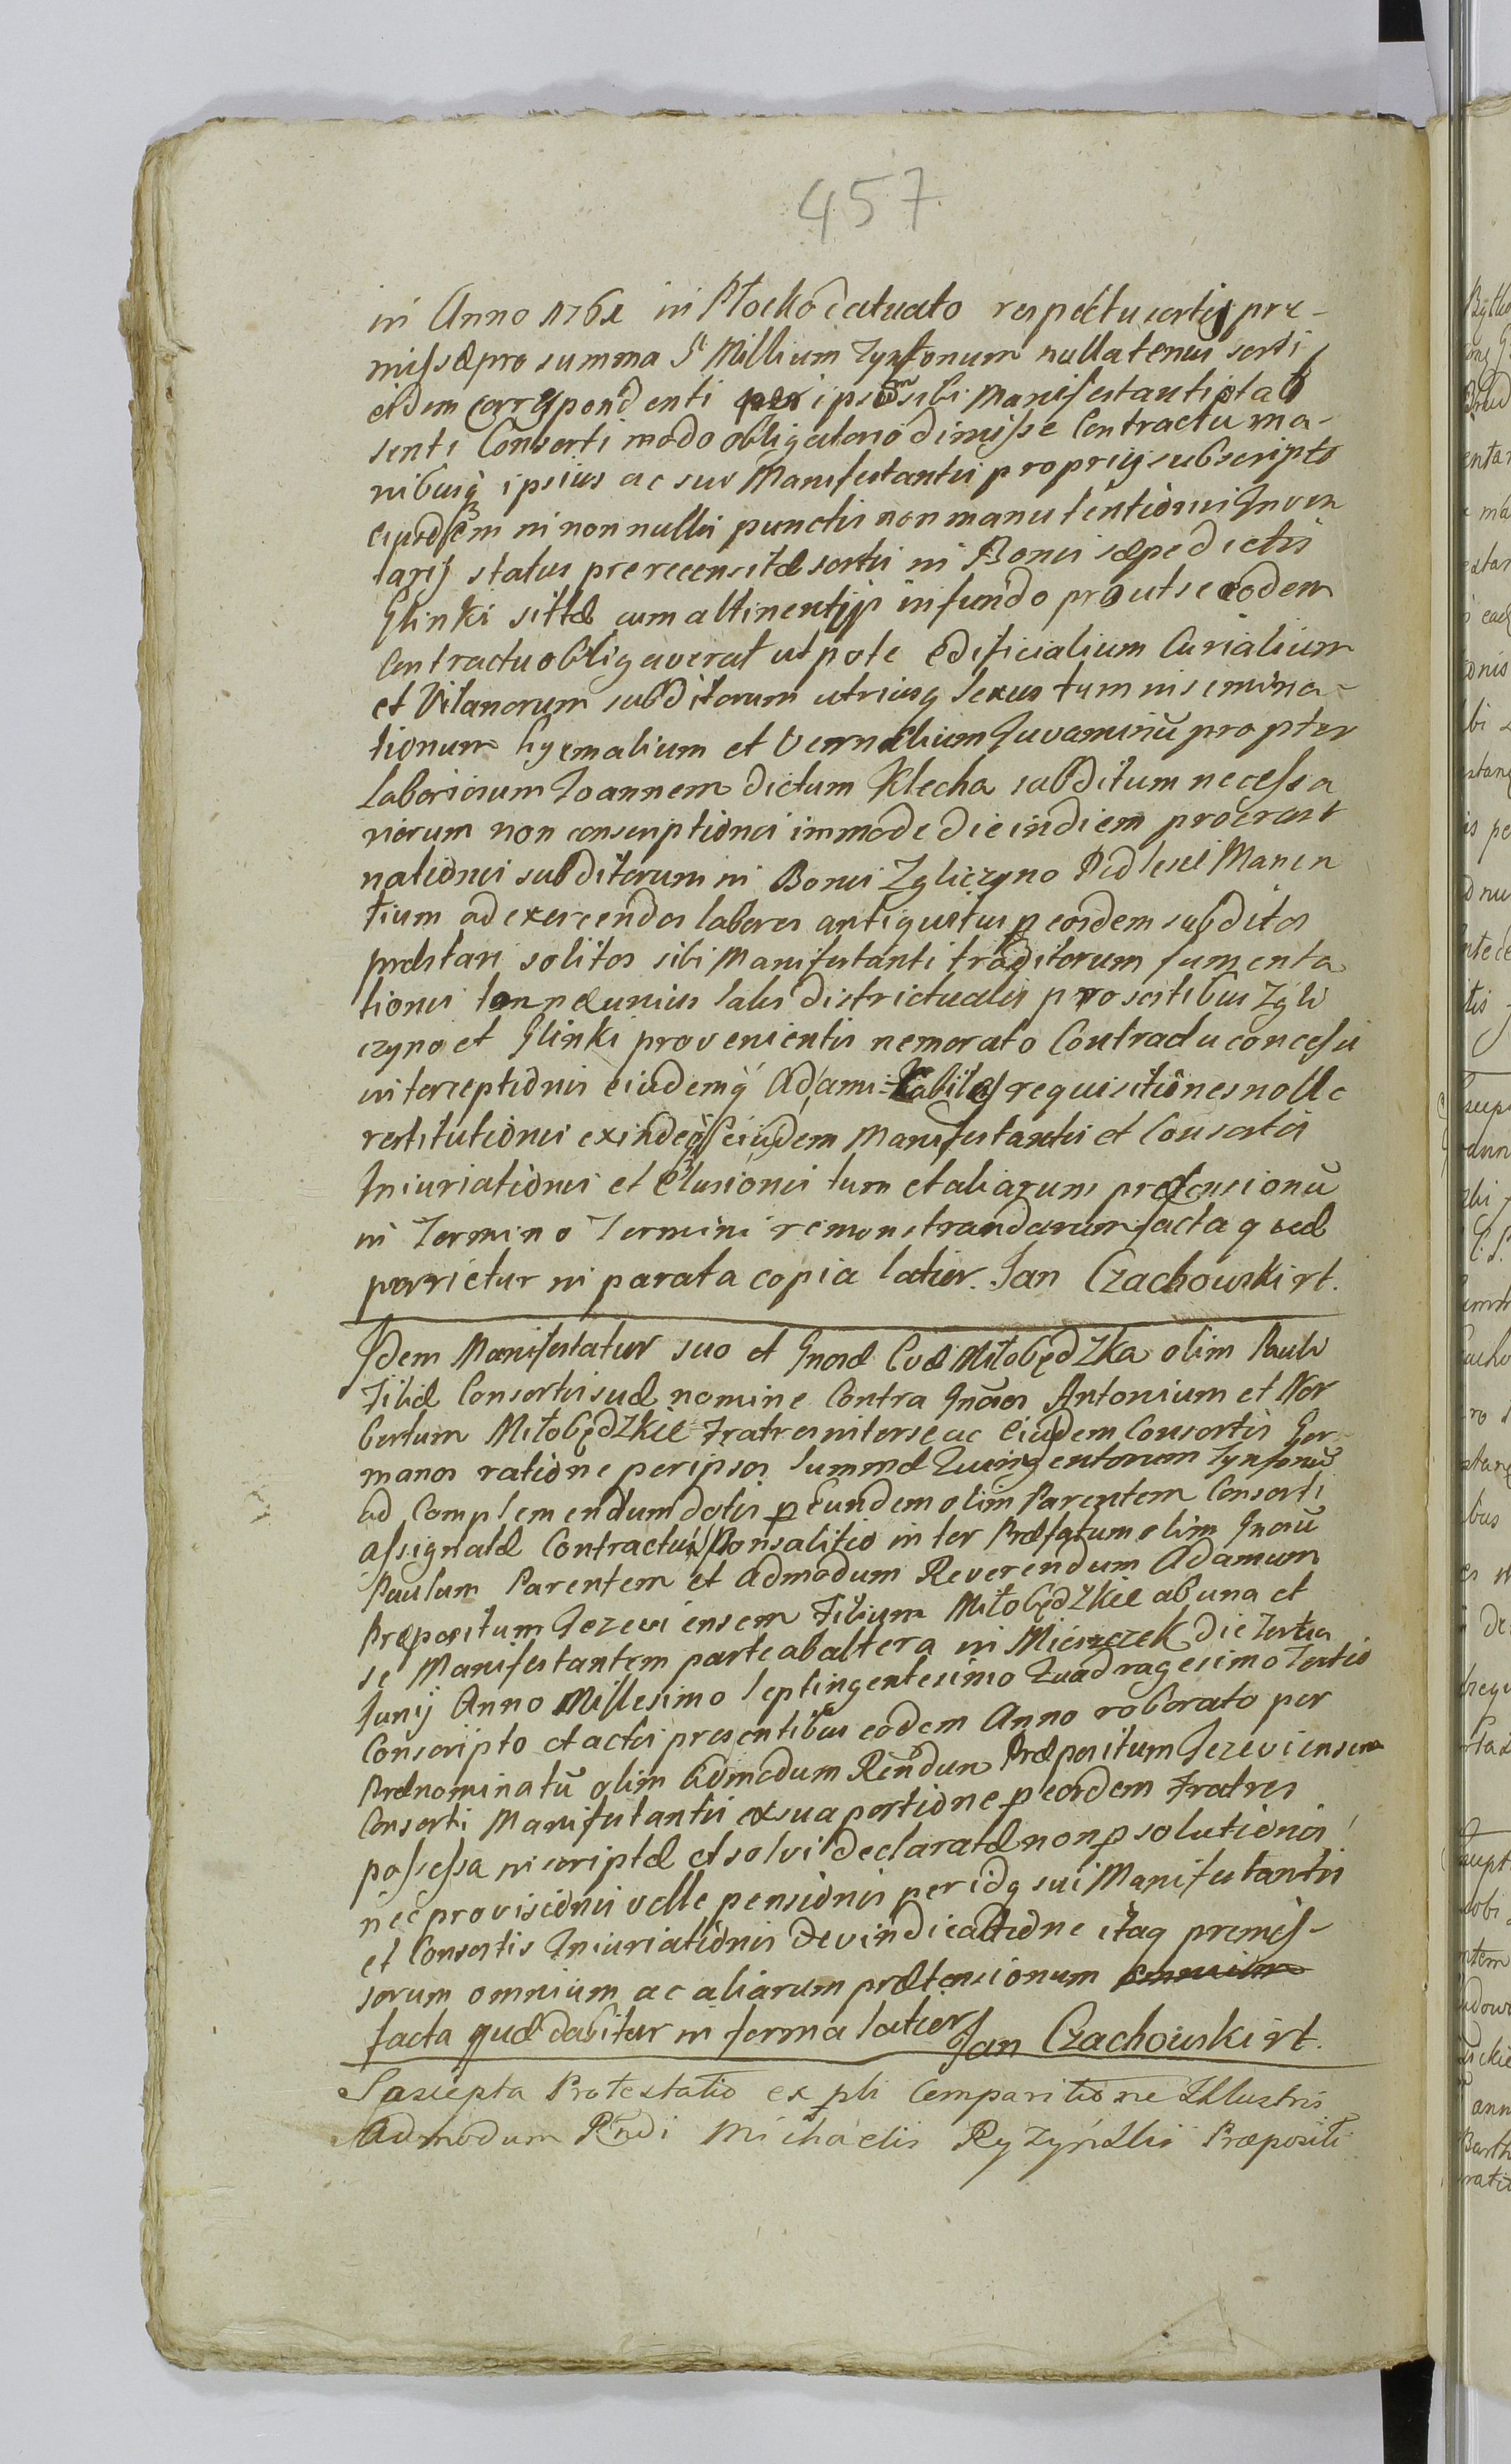 457
in Anno 1761 in Płocko datuato respectu sortis pre-
missæ pro summa St Millium Tynfonum nullatenus sorti
eidem correspondenti per ipsum sibi Manifestanti et ab
senti Consorti modo obligatorio dimissæ Contractu ma-
nibusq ipsius ac sui Manifestantis proprijs subscripto
eiusdem in non nullis punctis non manutentionis Inven
tarij status prerecensitæ sortis in Bonis sæpedictis
Glinki sittæ cum attinentijs in fundo prout se eodem
Contractu obligaverat utpote Edificialium Curialium
et Vilanorum subditorum utriusq sexus tum insemina-
tionum hyemalium et Vernalium Iuvaminū propter
Laboriosum Ioannem dictum Klecha subditum necessa
riorum non conscriptionis immo de die in diem procrast
nationis subditorum in Bonis Zgliczyno Podlesie Manen
tium ad exercendos labores antiquitus p eosdem subditos
præstari solitos sibi Manifestanti traditorum
tionis tum pecunius Salis districtualis pro sortibus Zgli
czyno et Glinki provenientis memorato Contractu concessi
interceptionis eiusdemq ad requisitiones nolle
restitutionis exindeq eiusdem Manifestantis et Consortis
Iniuriationis et Elusionis tum et aliarum prætensionū
in Termino Termini remonstrandarum facta q
porrietur in parata copia latior. Jan Czachowski rt.
Idem Manifestatur suo et Gnosæ Evæ Miłobędzka olim Pauli
Filiæ Consortis suæ nomine Contra Gnosos Antonium et Nor
bertum Miłobędzkie Fratres inter se ac Eiusdem Consortis Ger
manos ratione per ipsos Summæ Quingentorum Tynfonū
ad Complementum dotis p Eundem olim Parentem Consorti
assignatæ Contractu Sponsalitio inter Præfatum olim Gnosū
Paulum Parentem et Admodum Reverendum Adamum
Præpositum Jezeviensem Filium Miłobędzkie ab una et
se Manifestantem parte ab altera in Mieszczek die Tertia
Junij Anno Millesimo Septingentesimo Quadragesimo Tertio
Conscripto et actis presentibus eodem Anno roborato per
Prænominatū olim Admodum Rendum Præpositum Jezeviensem
Consorti Manifestantis ex sua portione p eosdem Fratres
possessa inscriptæ et solvi declaratæ non p solutionis
nec provisionis velle pensionis per idq sui Manifestantis
et Consortis Iniuriationis devindicatione itaq premis-
sorum omnium ac aliarum prætensionum
facta quæ dabitur in forma latior Jan Czachowski rt.
Suscepta Protestatio ex pli Comparitione Illustris
Admodum Rndi Michaelis Ryzyńskii Præpositi